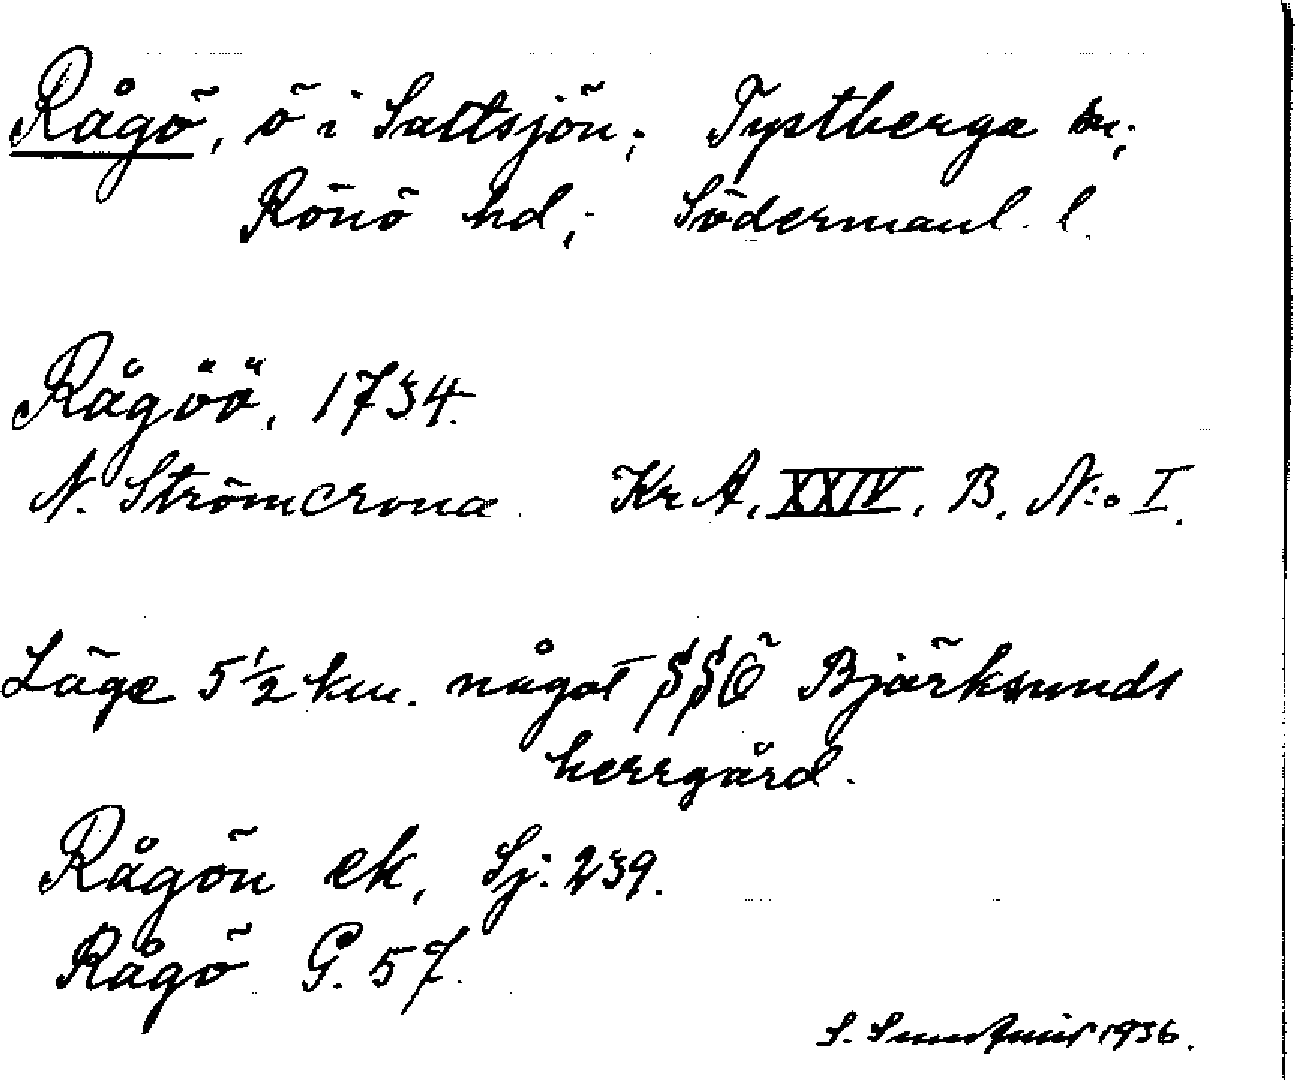 Rågö, ö i Saltsjön; Tystberga sn;
Rönö hd; Södermanl. l.
Rågöö, 1734.
N. Strömcrona. Kr A, XXIV, B, N:o I.
Läge 5 1/2 km. något SSÖ Björksunds
herrgård.
Rågön ek, Sj: 239.
Rågö G. 57.
S. 1936.